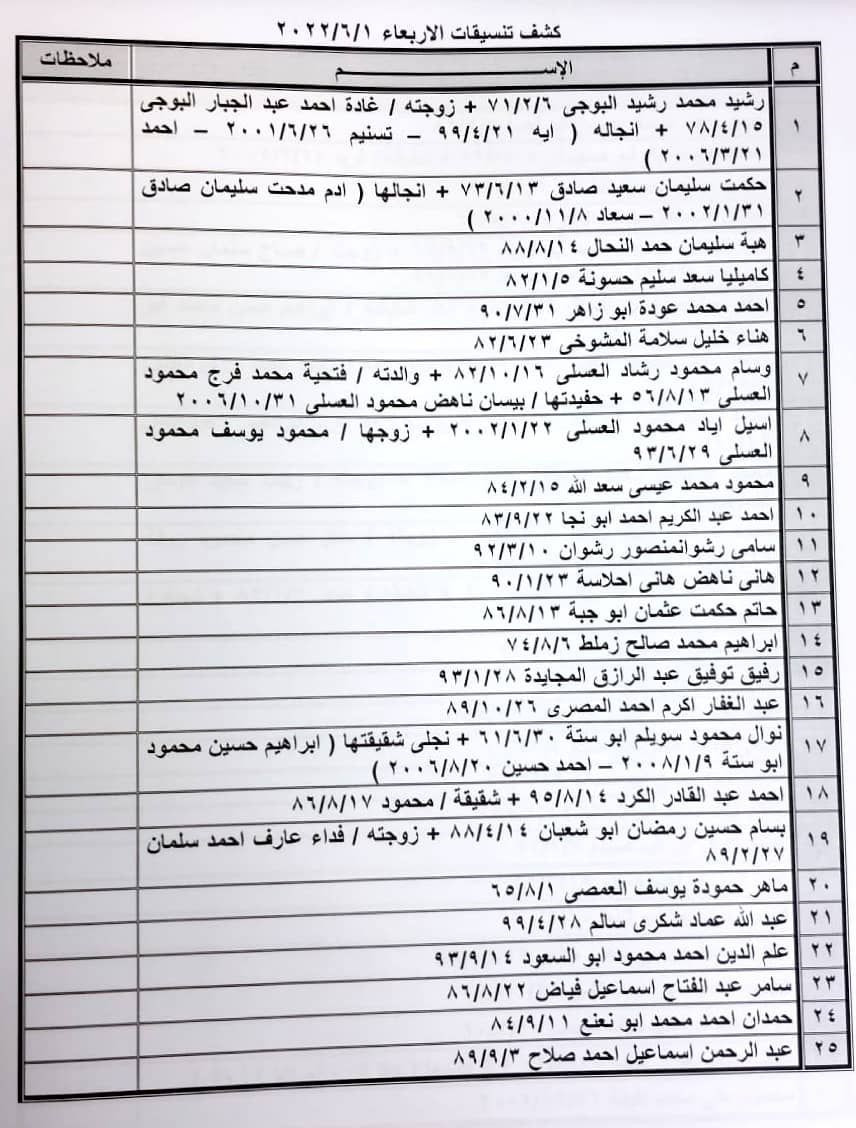 كشف تنسيقات الاربعاء ٢٠٢٢/٦/١
م الإســـــــم ملاحظات
١ رشيد محمد رشيد البوجى ٧١/٢/٦ + زوجته / غادة احمد عبد الجبار البوجى
٧٨/٤/١٥ + انجاله ( ايه ٩٩/٤/٢١ – تسنيم ٢٠٠١/٦/٢٦ – احمد
٢٠٠٦/٣/٢١ )
٢ حكمت سليمان سعيد صادق ٧٣/٦/١٣ + انجالها ( ادم مدحت سليمان صادق
٢٠٠٢/١/٣١ – سعاد ٢٠٠٠/١١/٨ )
٣ هبة سليمان حمد النحال ٨٨/٨/١٤
٤ كاميليا سعد سليم حسونة ٨٢/١/٥
٥ احمد محمد عودة ابو زاهر ٩٠/٧/٣١
٦ هناء خليل سلامة المشوخى ٨٢/٦/٢٣
٧ وسام محمود رشاد العسلى ٨٢/١٠/١٦ + والدته / فتحية محمد فرج محمود
العسلى ٥٦/٨/١٣ + حفيدتها / بيسان ناهض محمود العسلى ٢٠٠٦/١٠/٣١
٨ اسيل اياد محمود العسلى ٢٠٠٢/١/٢٢ + زوجها / محمود يوسف محمود
العسلى ٩٣/٦/٢٩
٩ محمود محمد عيسى سعد الله ٨٤/٢/١٥
١٠ احمد عبد الكريم احمد ابو نجا ٨٣/٩/٢٢
١١ سامى رشوانمنصور رشوان ٩٢/٣/١٠
١٢ هانى ناهض هانى احلاسة ٩٠/١/٢٣
١٣ حاتم حكمت عثمان ابو جبة ٨٦/٨/١٣
١٤ ابراهيم محمد صالح زملط ٧٤/٨/٦
١٥ رفيق توفيق عبد الرازق المجايدة ٩٣/١/٢٨
١٦ عبد الغفار اكرم احمد المصرى ٨٩/١٠/٢٦
١٧ نوال محمود سويلم ابو ستة ٦١/٦/٣٠ + نجلى شقيقتها ( ابراهيم حسين محمود
ابو ستة ٢٠٠٨/١/٩ – احمد حسين ٢٠٠٦/٨/٢٠ )
١٨ احمد عبد القادر الكرد ٩٥/٨/١٤ + شقيقة / محمود ٨٦/٨/١٧
١٩ بسام حسين رمضان ابو شعبان ٨٨/٤/١٤ + زوجته / فداء عارف احمد سلمان
٨٩/٢/٢٧
٢٠ ماهر حمودة يوسف العمصى ٦٥/٨/١
٢١ عبد الله عماد شكرى سالم ٩٩/٤/٢٨
٢٢ علم الدين احمد محمود ابو السعود ٩٣/٩/١٤
٢٣ سامر عبد الفتاح اسماعيل فياض ٨٦/٨/٢٢
٢٤ حمدان احمد محمد ابو نعنع ٨٤/٩/١١
٢٥ عبد الرحمن اسماعيل احمد صلاح ٨٩/٩/٣